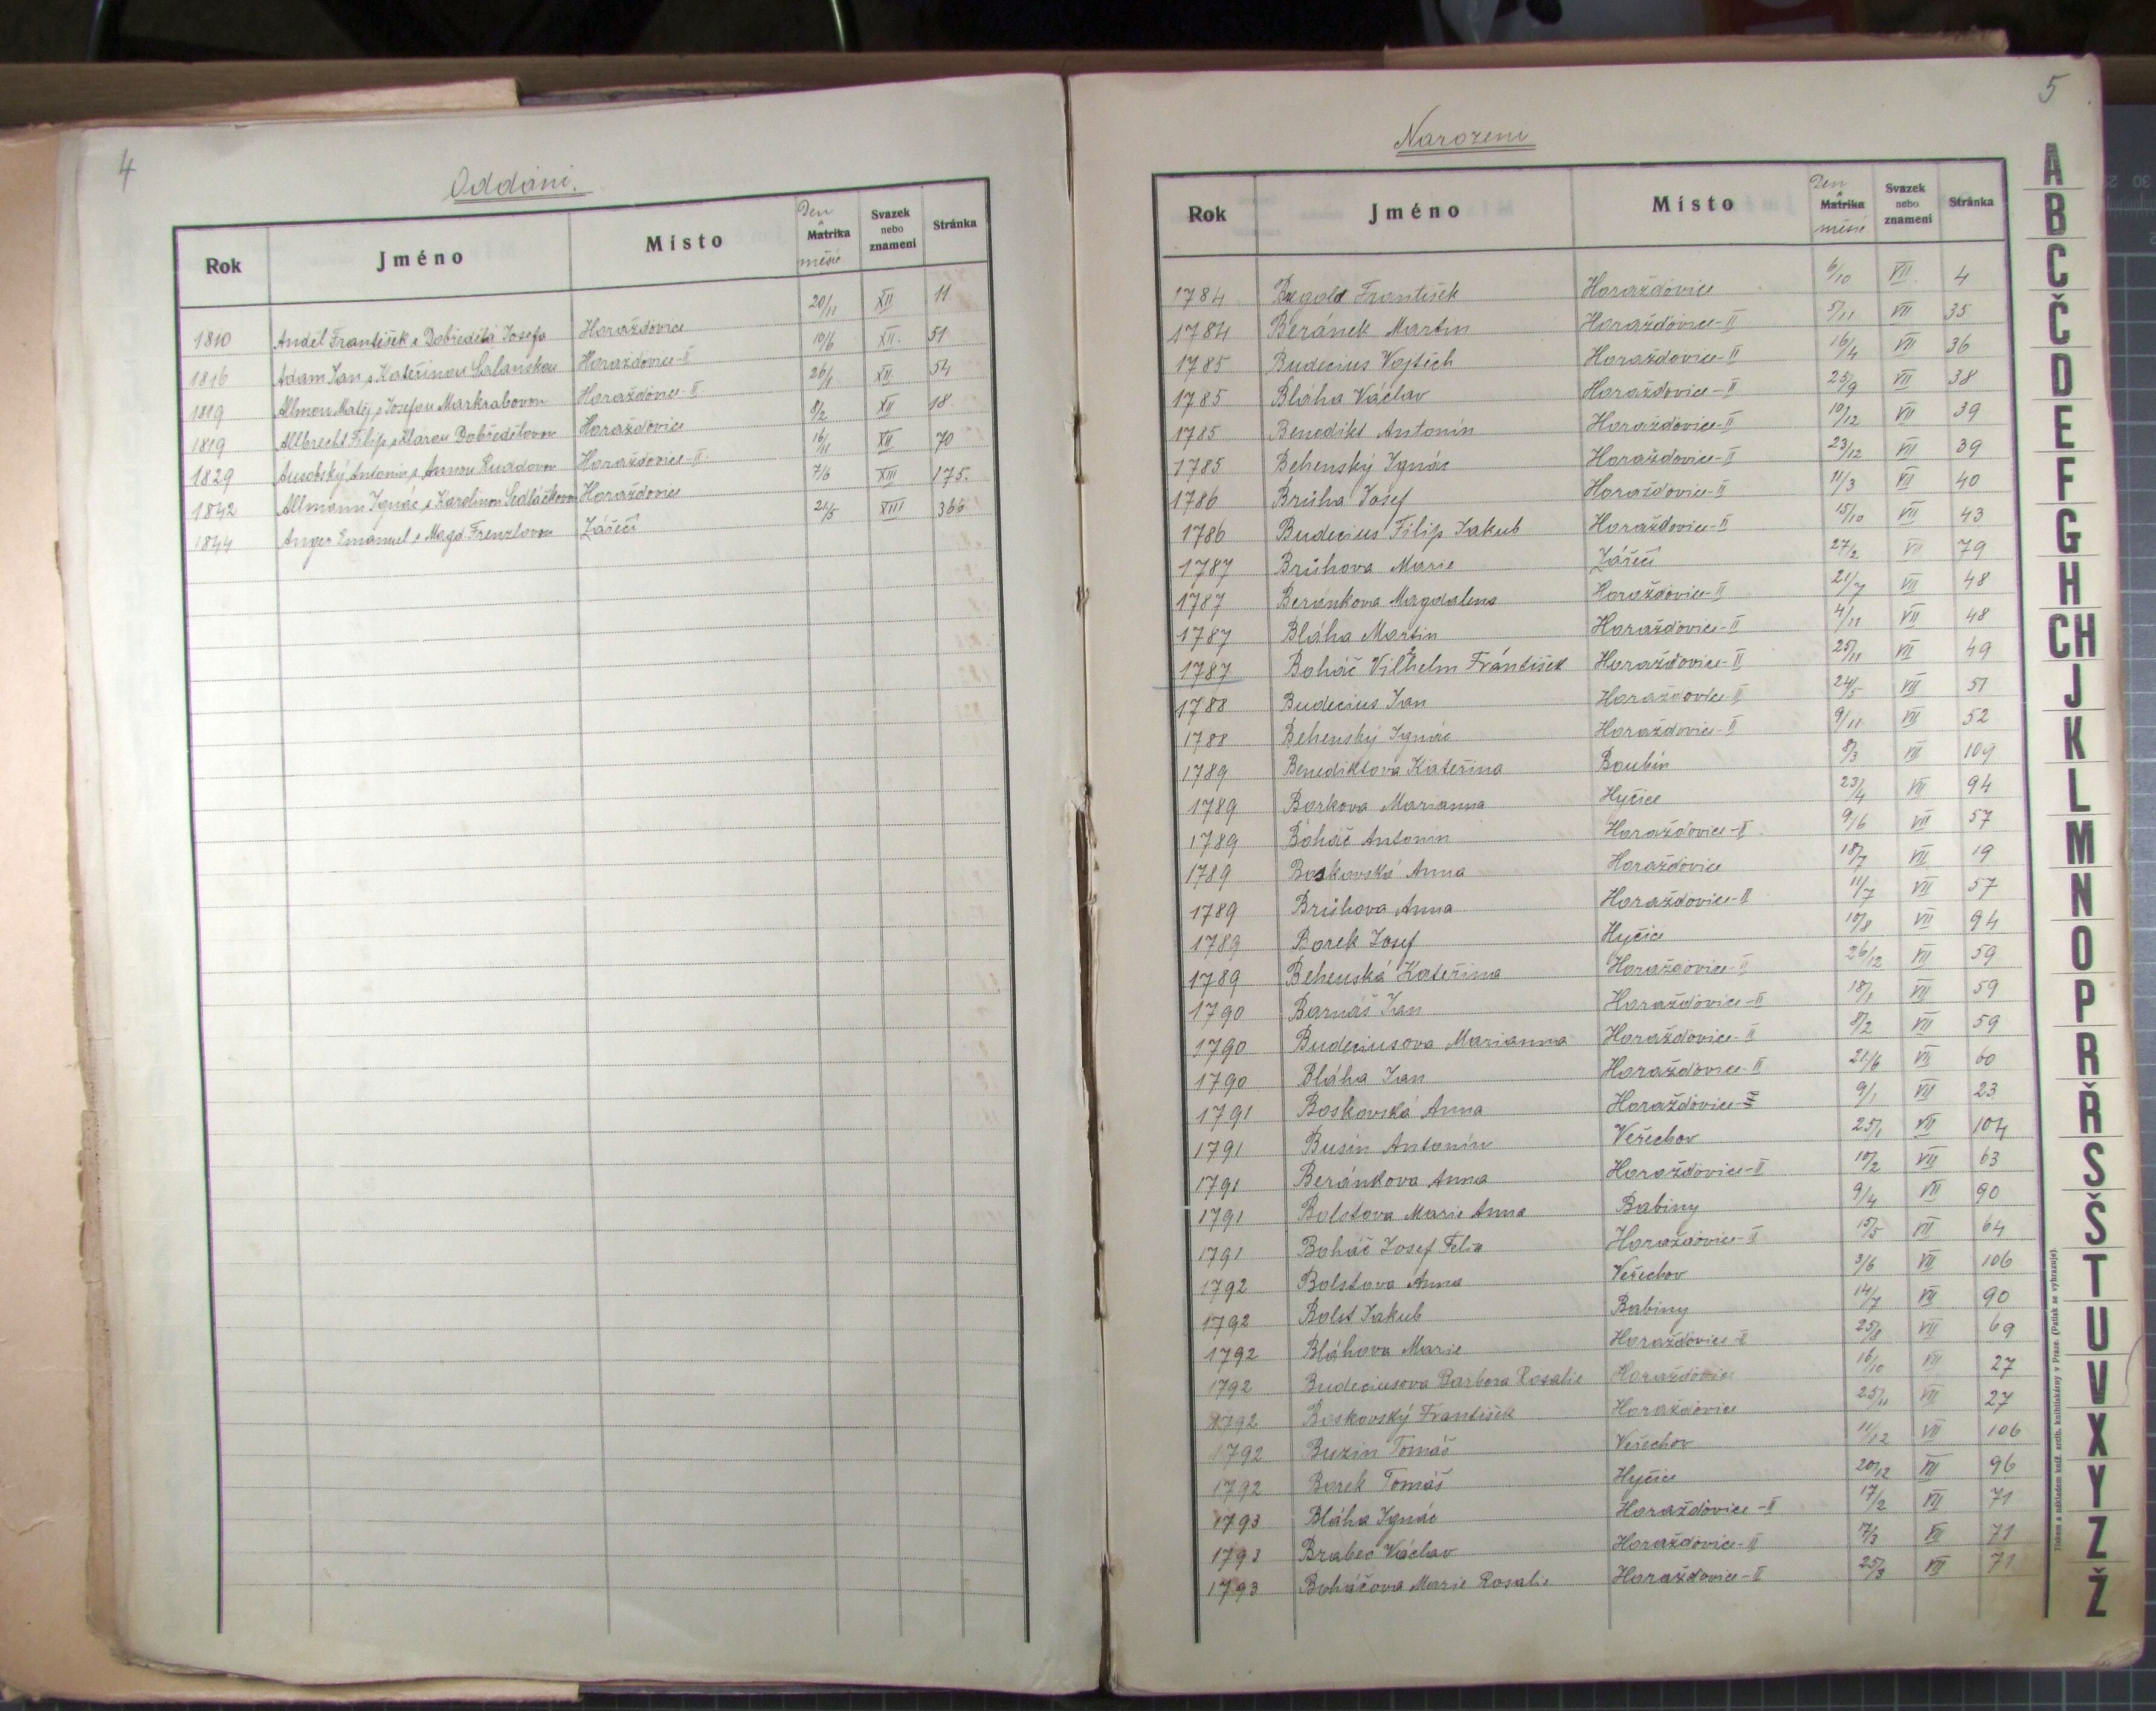 4
Oddáni.
Rok Jméno Místo Den a Matrika měsíc Svazek nebo znamení Stránka
1810 Anděl František s Dobředělá Josefa Horažďovice 20/11 XII 11
1816 Adam Jan s Kateřinou Salanskou Horažďovice-II 10/6 XII. 51
1819 Allmon Matěj s Josefou Markrabovou Horažďovice II. 26/1 XII 54
1819 Allbrecht Filip s Klárou Dobředělovou Horažďovice 8/2 XII 18.
1829 Antonín s Annou Ruddovou Horažďovice-II. 16/11 XII 70
1842 Allmann Ignác s Karolinou Sedláčkovou Horažďovice 7/6 XIII 175.
1844 Anger Emanuel s Magd. Frenzlovou Zářečí 21/5 XIII 366
5
Narození
Rok Jméno Místo Den a Matrika měsíc Svazek nebo znamení Stránka
1784 František Horažďovice 6/10 VII. 4
1784 Beránek Martin Horažďovice-II 5/11 VII 35
1785 Budecius Vojtěch Horažďovice-II 16/4 VII 36
1785 Bláha Václav Horažďovice-II 25/9 VII 38
1785 Benedikt Antonín Horažďovice-II 10/12 VII 39
1785 Behenský Ignác Horažďovice-II 23/12 VII 39
1786 Brůha Josef Horažďovice-II 11/3 VII 40
1786 Budecius Filip Jakub Horažďovice-II 15/10 VII 43
1787 Brůhova Marie Zářečí 27/2 VII 79
1787 Beránkova Magdalena Horažďovice-II 21/7 VII 48
1787 Bláha Martin Horažďovice-II 4/11 VII 48
1787 Boháč Vilhelm František Horažďovice-II 25/11 VII 49
1788 Budecius Jan Horažďovice-II 24/5 VII 51
1788 Behenský Ignác Horažďovice-II 9/11 VII 52
1789 Benediktova Kateřina Boubín 8/3 VII 109
1789 Borkova Marianna Hyčice 23/4 VII 94
1789 Boháč Antonín Horažďovice-II 9/6 VII 57
1789 Boskovská Anna Horažďovice 18/7 VII 19
1789 Brůhova Anna Horažďovice-II 11/7 VII 57
1789 Borek Josef Hyčice 10/8 VII 94
1789 Behenská Kateřina Horažďovice-II 26/12 VII 59
1790 Barnáš Jan Horažďovice-II 18/1 VII 59
1790 Budeciusova Marianna Horažďovice-II 8/2 VII 59
1790 Bláha Jan Horažďovice-II 21/6 VII 60
1791 Boskovská Anna Horažďovice-II 9/1 VII 23
1791 Busín Antonín Veřechov 25/1 VII 104
1791 Beránkova Anna Horažďovice-II 10/2 VII 63
1791 Bolstova Marie Anna Babiny 9/4 VII 90
1791 Boháč Josef Felix Horažďovice-II 15/5 VII 64
1792 Bolstova Anna Veřechov 3/6 VII 106
1792 Bolst Jakub Babiny 14/7 VII 90
1792 Bláhova Marie Horažďovice-II 25/8 VII 69
1792 Budeciusova Barbora Rosalie Horažďovice 16/10 VII 27
1792 Boskovský František Horažďovice 25/11 VII 27
1792 Buzin Tomáš Veřechov 11/12 VII 106
1792 Borek Tomáš Hyčice 20/12 VII 96
1793 Bláha Ignác Horažďovice-II 17/2 VII 71
1793 Brabec Václav Horažďovice-II 17/3 VII 71
1793 Boháčova Marie Rosalie Horažďovice-II 25/3 VII 71
Tiskem a nákladem kníž. arcib. knihtiskárny v Praze. (Patisk se vyhrazuje).
A
B
C
Č
D
E
F
G
H
CH
J
K
L
M
N
O
P
R
Ř
S
Š
T
U
V
X
Y
Z
Ž